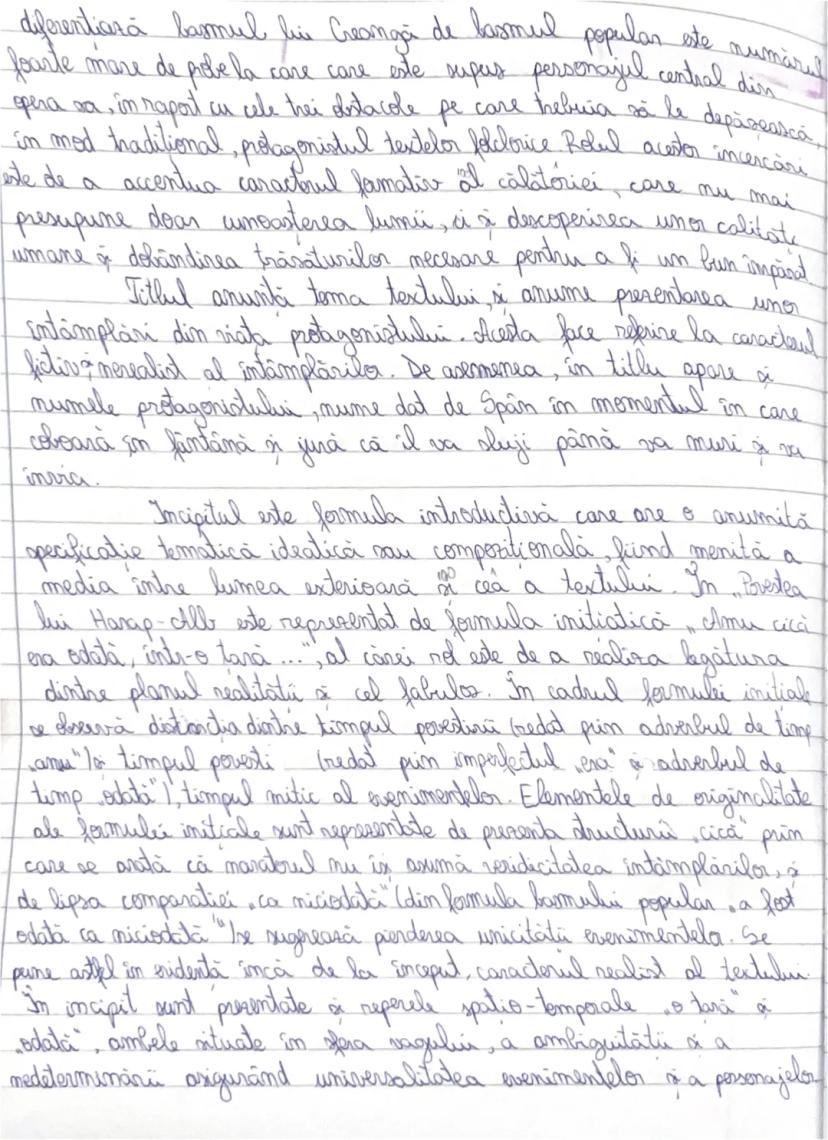 diferențiază basmul lui Creangă de basmul popular este numărul
foarte mare de probe la care care este supus personajul central din
opera sa, în raport cu cele trei obstacole pe care trebuia să le depășească,
în mod tradițional, protagonistul textelor folclorice. Rolul acestor încercări
este de a accentua caracterul formativ al călătoriei, care nu mai
presupune doar cunoașterea lumii, ci și descoperirea unor calități
umane și dobândirea trăsăturilor necesare pentru a fi un bun împărat.
Titlul anunță tema textului, și anume prezentarea unor
întâmplări din viața protagonistului. Acesta face referire la caracterul
fictiv și nerealist al întâmplărilor. De asemenea, în titlu apare și
numele protagonistului, nume dat de Spân în momentul în care
coboară în fântână și jură că îl va sluji până va muri și va
învia.
Incipitul este formula introductivă care are o anumită
specificație tematică ideatică sau compozițională, fiind menită a
media între lumea exterioară și cea a textului. În „Povestea
lui Harap-Alb este reprezentat de formula inițiatică „Amu cică
era odată, într-o țară ...”, al cărei rol este de a realiza legătura
dintre planul realității și cel fabulos. În cadrul formulei inițiale
se observă distincția dintre timpul povestirii (redat prin adverbul de timp
„amu”) și timpul povești (redat prin imperfectul „era” și adverbul de
timp „odată”), timpul mitic al evenimentelor. Elementele de originalitate
ale formulei inițiale sunt reprezentate de prezența structurii „cică” prin
care se arată că naratorul nu își asumă veridicitatea întâmplărilor, și
de lipsa comparației „ca niciodată” (din formula basmului popular „a fost
odată ca niciodată”) se sugerează pierderea unicității evenimentelor. Se
pune astfel în evidență încă de la început, caracterul realist al textului.
În incipit sunt prezentate și reperele spatio-temporale „o țară” și
„odată”, ambele situate în sfera vagului, a ambiguității și a
nedeterminării asigurând universalitatea evenimentelor și a personajelor